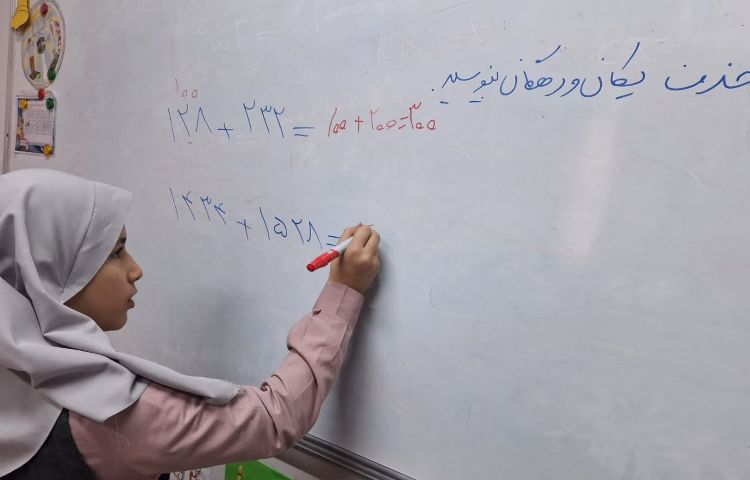 حذف یکان و دهگان بنویسید.
۱۰۰
۱۲۸ + ۲۳۲ = ۱۰۰ + ۲۰۰ = ۳۰۰
۱۴۳۴ + ۱۵۲۸ =